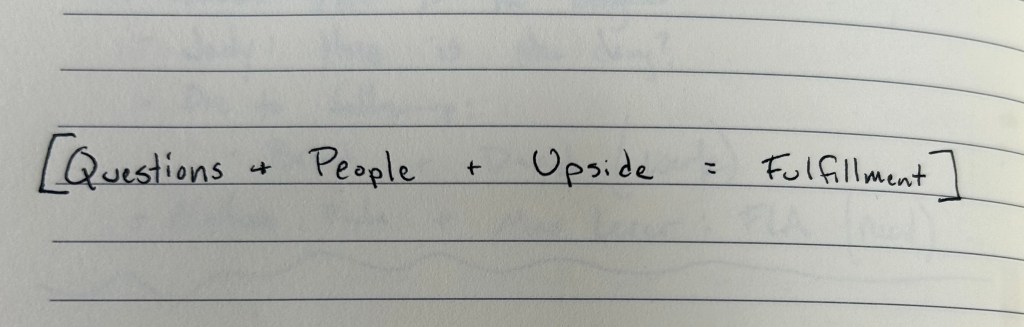 [Questions + People + Upside = Fulfillment]